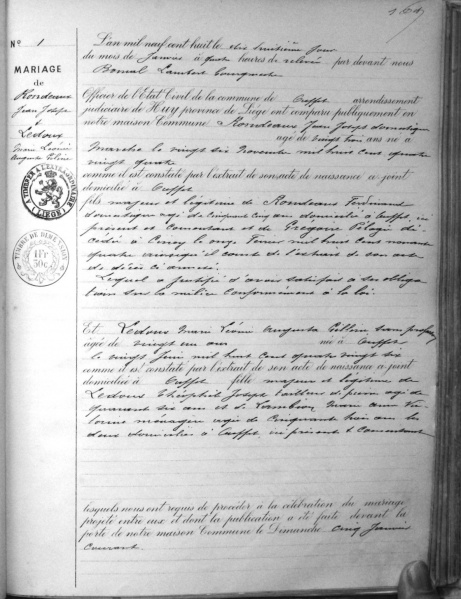 N° 1
MARIAGE
de
Rondeaux
Jean Joseph
&
Ledoux
Marie Léonie
Augusta
L'an mil neuf cent huit le dix huitième jour
du mois de Janvier à quatre heures de relevée par devant nous
Bomal Lambert
Officier de l'Etat Civil de la commune de arrondissement
judiciaire de Huy province de Liége ont comparu publiquement en
notre maison Commune Rondeaux Jean Joseph domestique
âgé de vingt trois ans né à
Marche le vingt six Novembre mil huit cent quatre
vingt quatre
comme il est constaté par l'extrait de son acte de naissance ci-joint
domicilié à
fils majeur et légitime de Rondeaux Ferdinand
domestique âgé de cinquante cinq ans domicilié à ici
présent et consentant et de Grégoire dé
cédée à le onze Février mil huit cent nonante
quatre ainsi qu'il conste de l'extrait de son acte
de décès ci annexé.
Lequel a justifié d'avoir satisfait à ses obliga
tions sur la milice conformément à la loi.
Et Ledoux Marie Léonie Augusta sans profession
âgée de vingt un ans née à
le vingt Juin mil huit cent quatre vingt six
comme il est constaté par l'extrait de son acte de naissance ci-joint
domiciliée à fille majeure et légitime de
Ledoux Théophile Joseph tailleur de pierre âgé de
quarante six ans et de Marie
ménagère âgée de cinquante trois ans les
deux domiciliés à ici présents & consentants
lesquels nous ont requis de procéder à la célébration du mariage
projeté entre eux et dont la publication a été faite devant la
porte de notre maison Commune le Dimanche cinq Janvier
Courant.
TIMBRE DE DIMENSION
1 Fr
50c